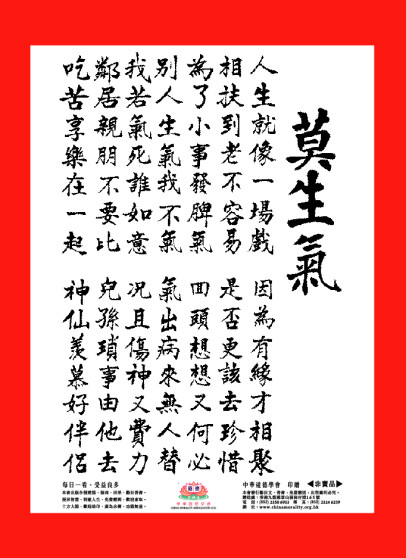 莫生氣
人生就像一場戲 因為有緣才相聚
相扶到老不容易 是否更該去珍惜
為了小事發脾氣 回頭想想又何必
別人生氣我不氣 氣出病來無人替
我若氣死誰如意 況且傷神又費力
鄰居親朋不要比 兒孫瑣事由他去
吃苦享樂在一起 神仙羨慕好伴侶
每日一看・受益良多
中華道德學會 印贈 ◀非賣品▶
www.chinamorality.org.hk